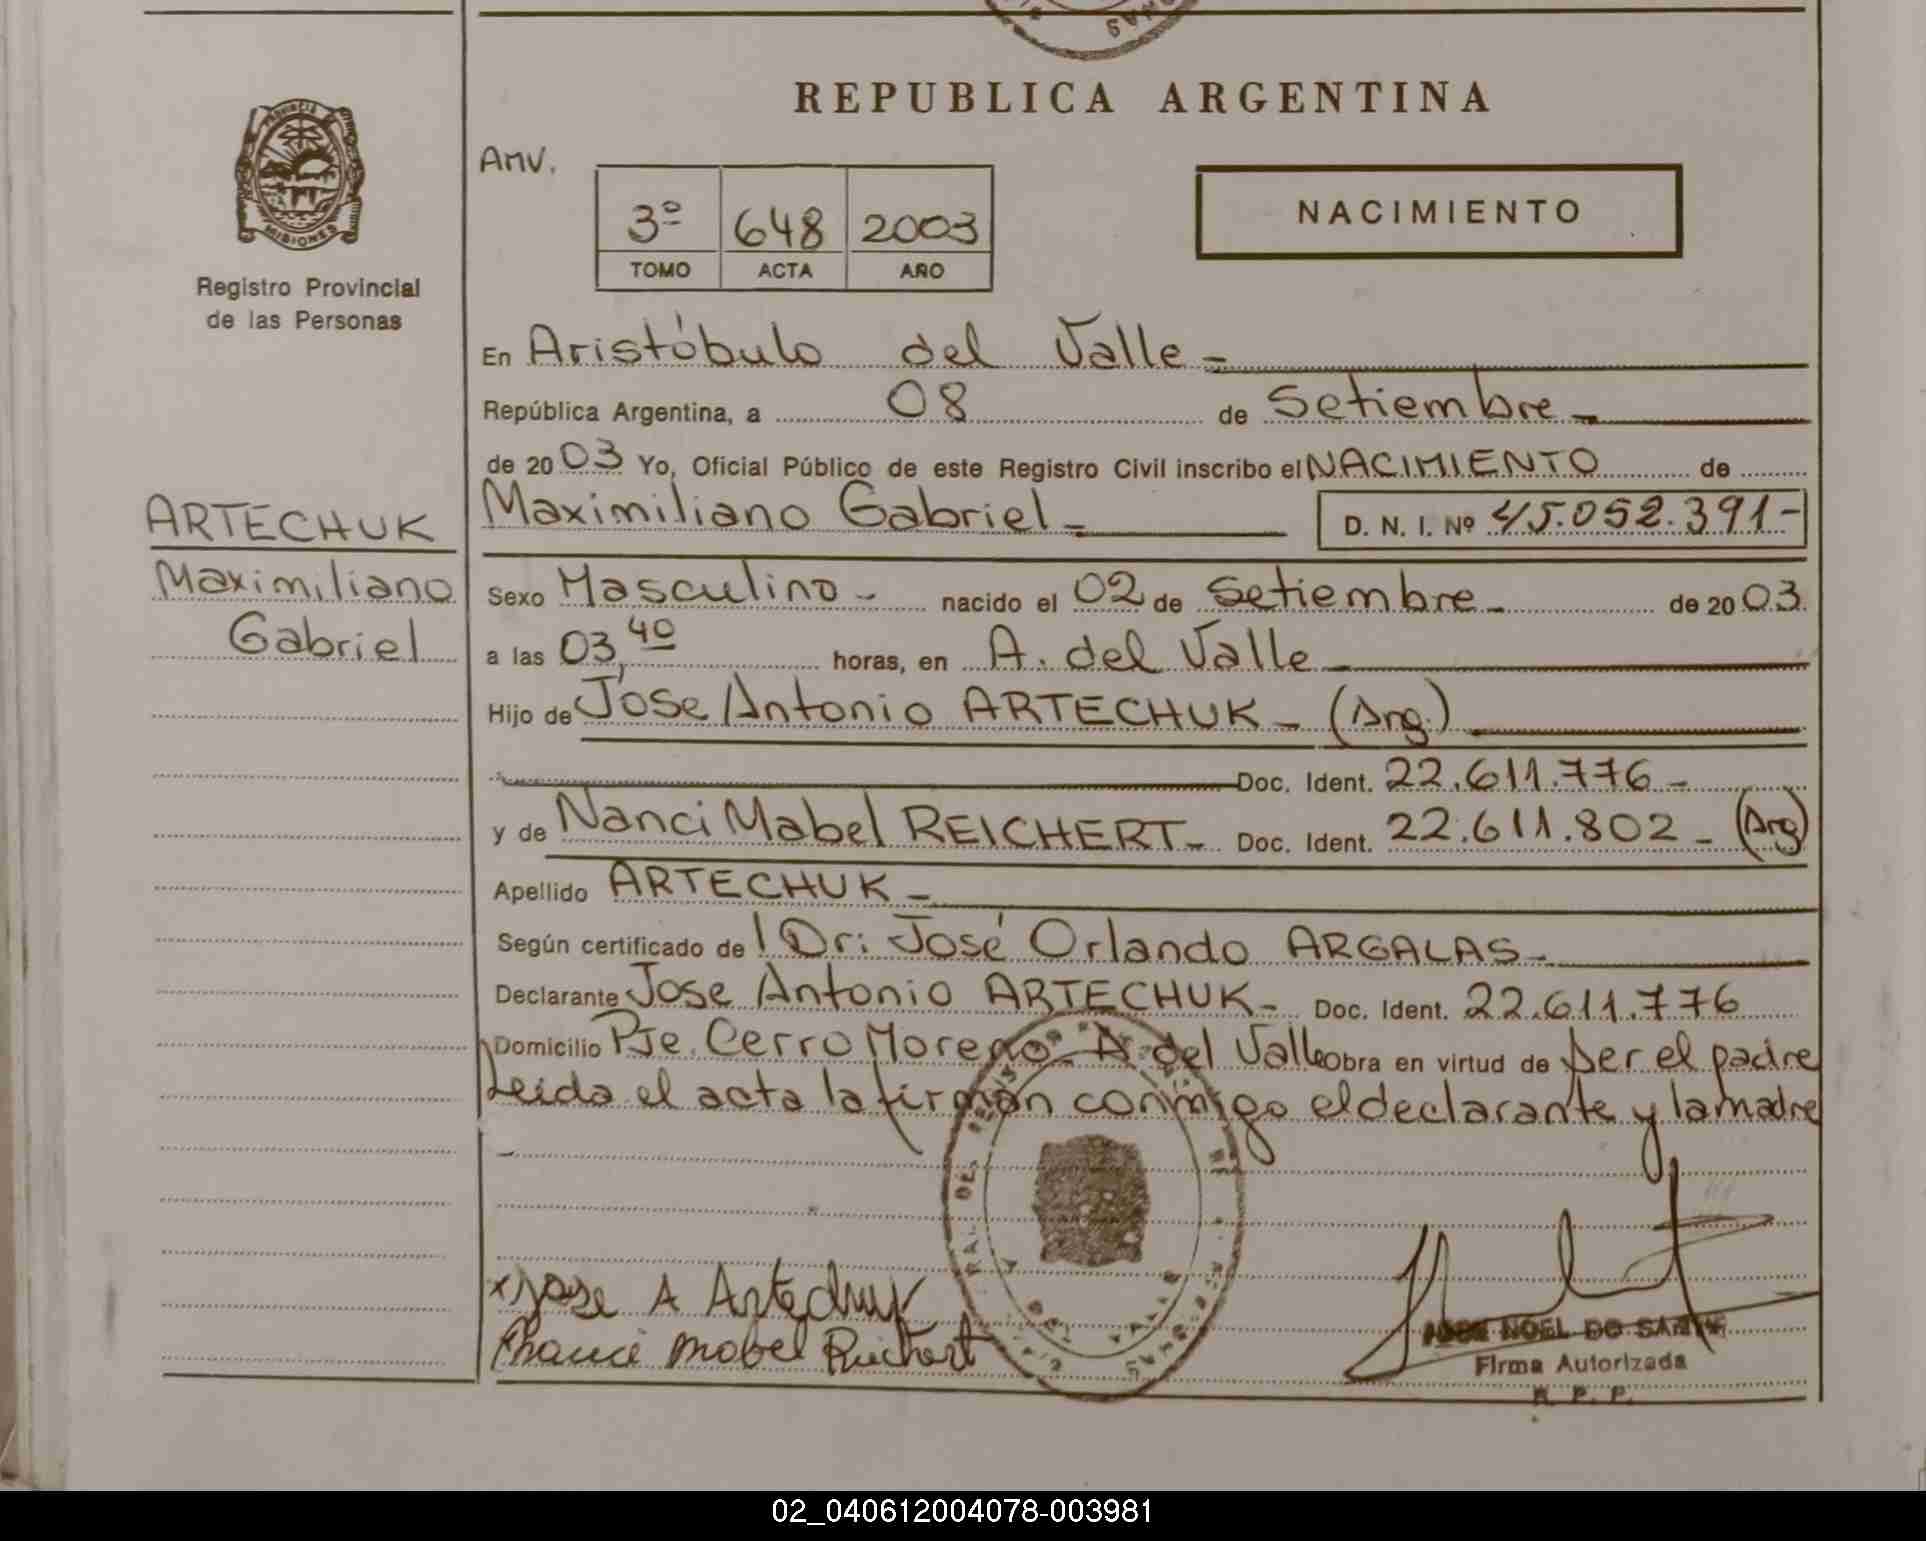 REPUBLICA ARGENTINA
PROVINCIA DE
MISIONES
Registro Provincial
de las Personas
AMV.
3º 648 2003
TOMO ACTA AÑO
NACIMIENTO
En Aristóbulo del Valle -
República Argentina, a 08 de Setiembre -
de 20 03 Yo, Oficial Público de este Registro Civil inscribo el NACIMIENTO de
ARTECHUK
Maximiliano
Gabriel
Maximiliano Gabriel - D. N. I. Nº 45.052.391-
Sexo Masculino - nacido el 02 de Setiembre - de 20 03
a las 03,40 horas, en A. del Valle -
Hijo de Jose Antonio ARTECHUK - (Arg.)
Doc. Ident. 22.611.776 -
y de Nanci Mabel REICHERT - Doc. Ident. 22.611.802 - (Arg)
Apellido ARTECHUK -
Según certificado de Dr: José Orlando ARGALAS -
Declarante Jose Antonio ARTECHUK - Doc. Ident. 22.611.776
Domicilio Pje. Cerro Moreno - A del Valle obra en virtud de ser el padre
Leida el acta la firman conmigo el declarante y la madre
x Jose A Artechuk
Mabel Reichert
NOEL DO
Firma Autorizada
R. P. P.
02_040612004078-003981